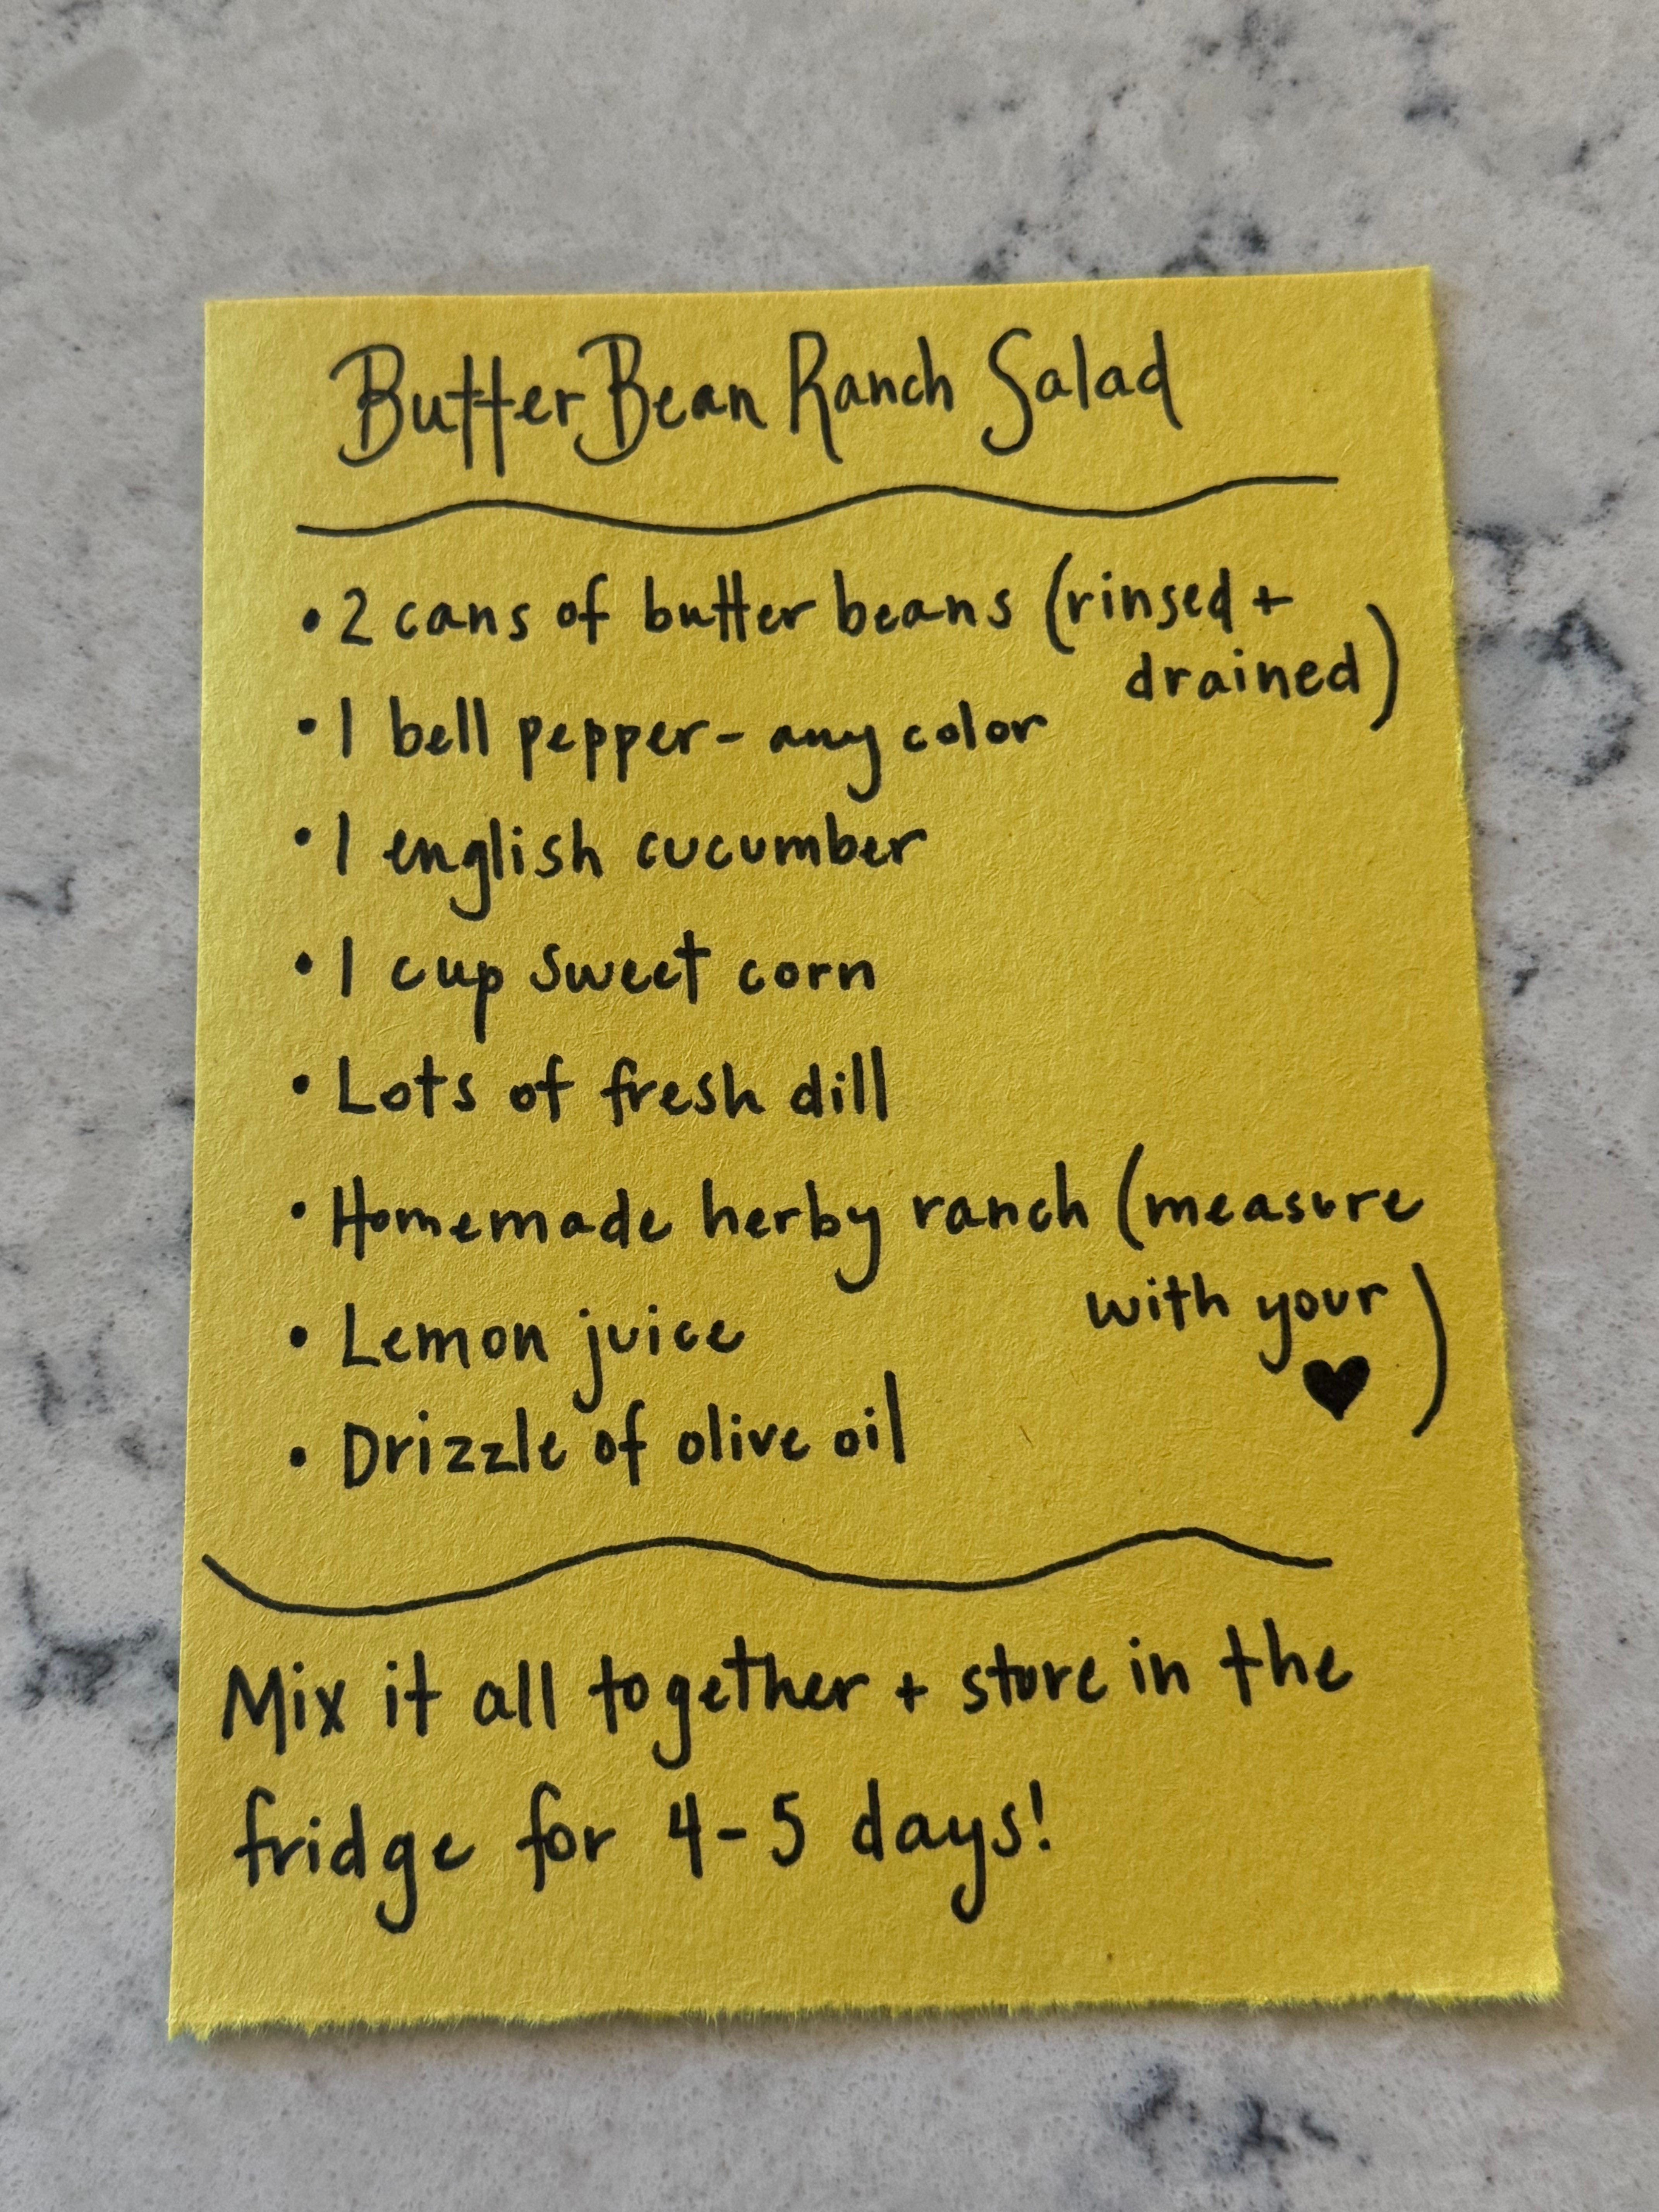 Butter Bean Ranch Salad
• 2 cans of butter beans (rinsed +
drained)
• 1 bell pepper - any color
• 1 english cucumber
• 1 cup sweet corn
• Lots of fresh dill
• Homemade herby ranch (measure
with your
♥)
• Lemon juice
• Drizzle of olive oil
Mix it all together + store in the
fridge for 4-5 days!